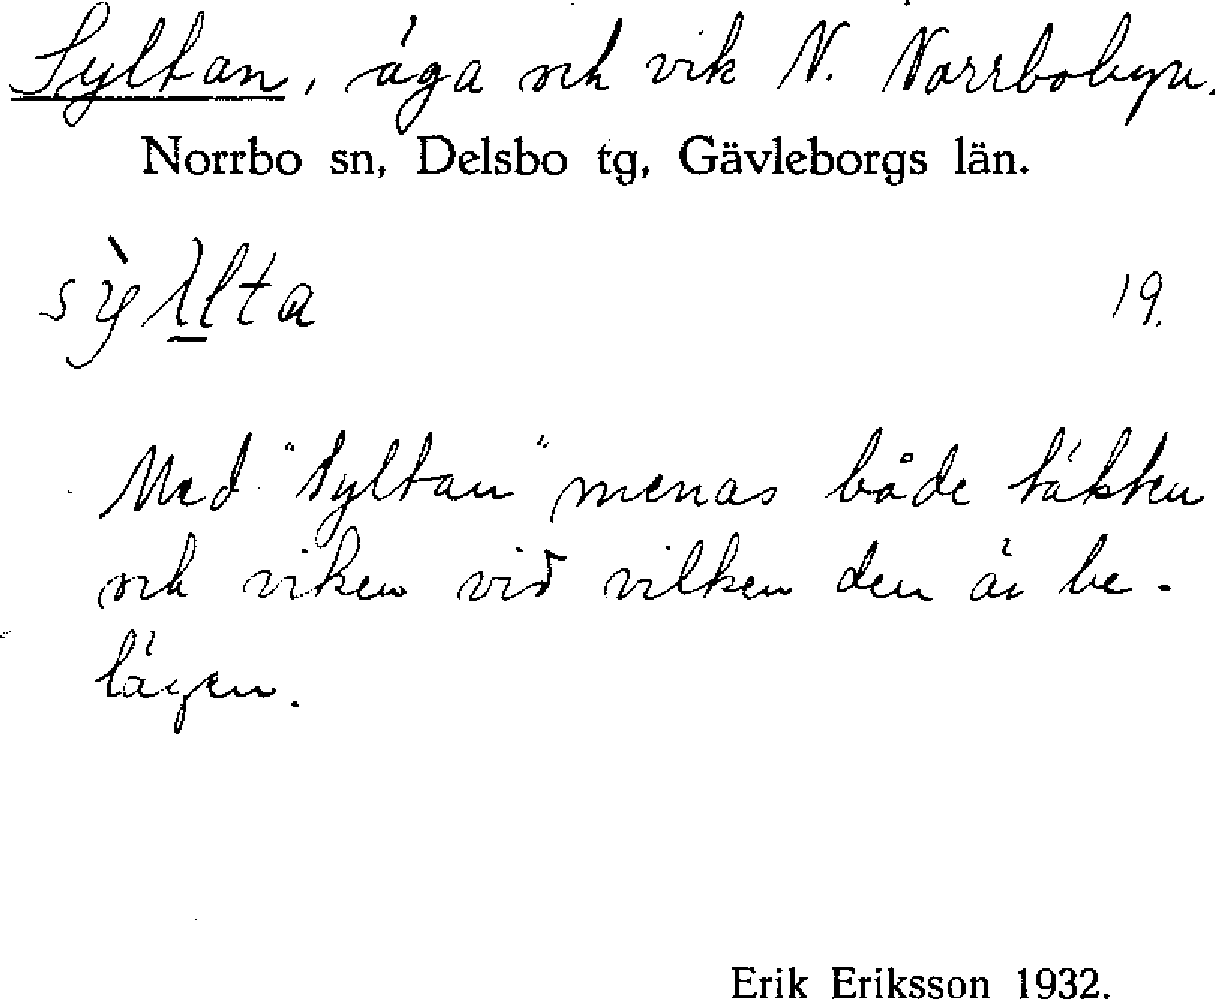 Syltan, äga och vik N. Norrbobyn.
Norrbo sn, Delsbo tg, Gävleborgs län.
sỳllta 19.
Med "Syltan" menas både täkten
och viken vid vilken den är be-
lägen.
Erik Eriksson 1932.